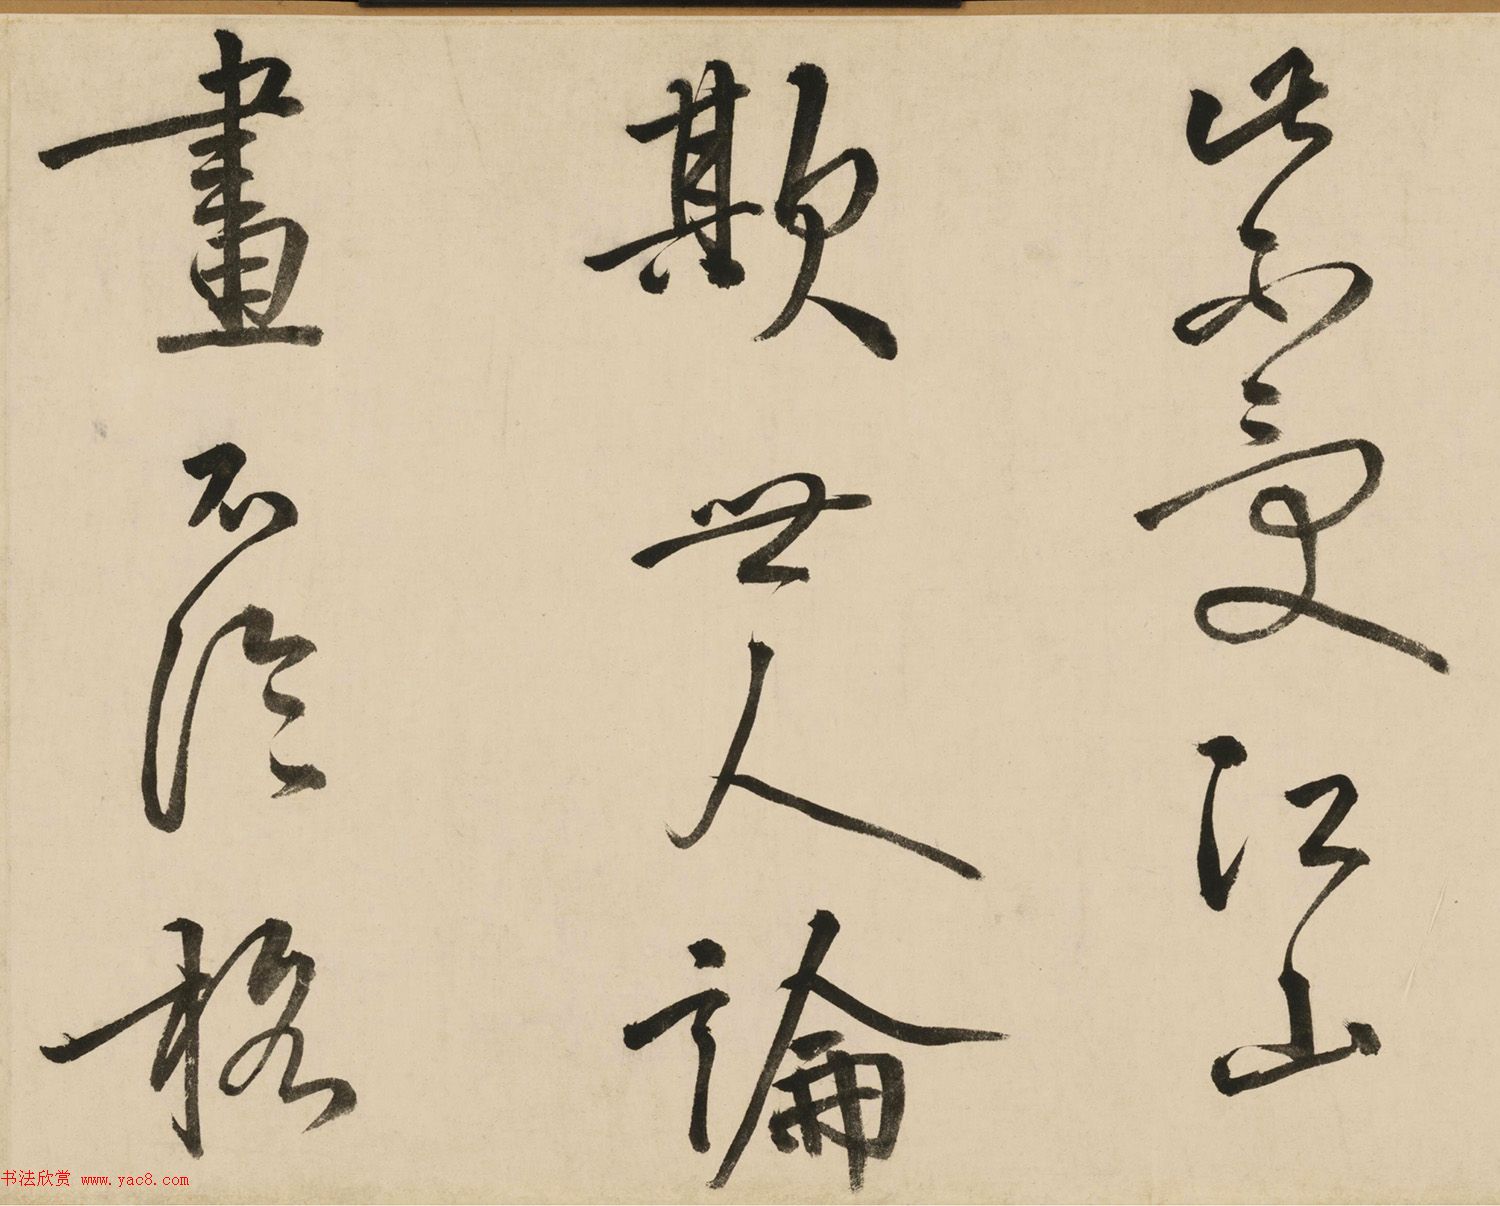 此不受江山
欺世人論
畫不論格
书法欣赏 www.yac8.com